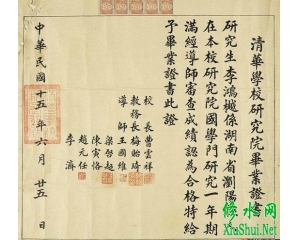 清華學校研究院畢業證書
研究生李鴻樾係湖南省瀏陽
在本校研究院國學門研究一年期
滿經導師審查成績認為合格特給
予畢業證書此證
校長曹雲祥
教務長梅貽琦
導師王國維
梁啓超
陳寅恪
趙元任
李濟
中華民國十五年六月廿五日
修水网
XiuShui.Net